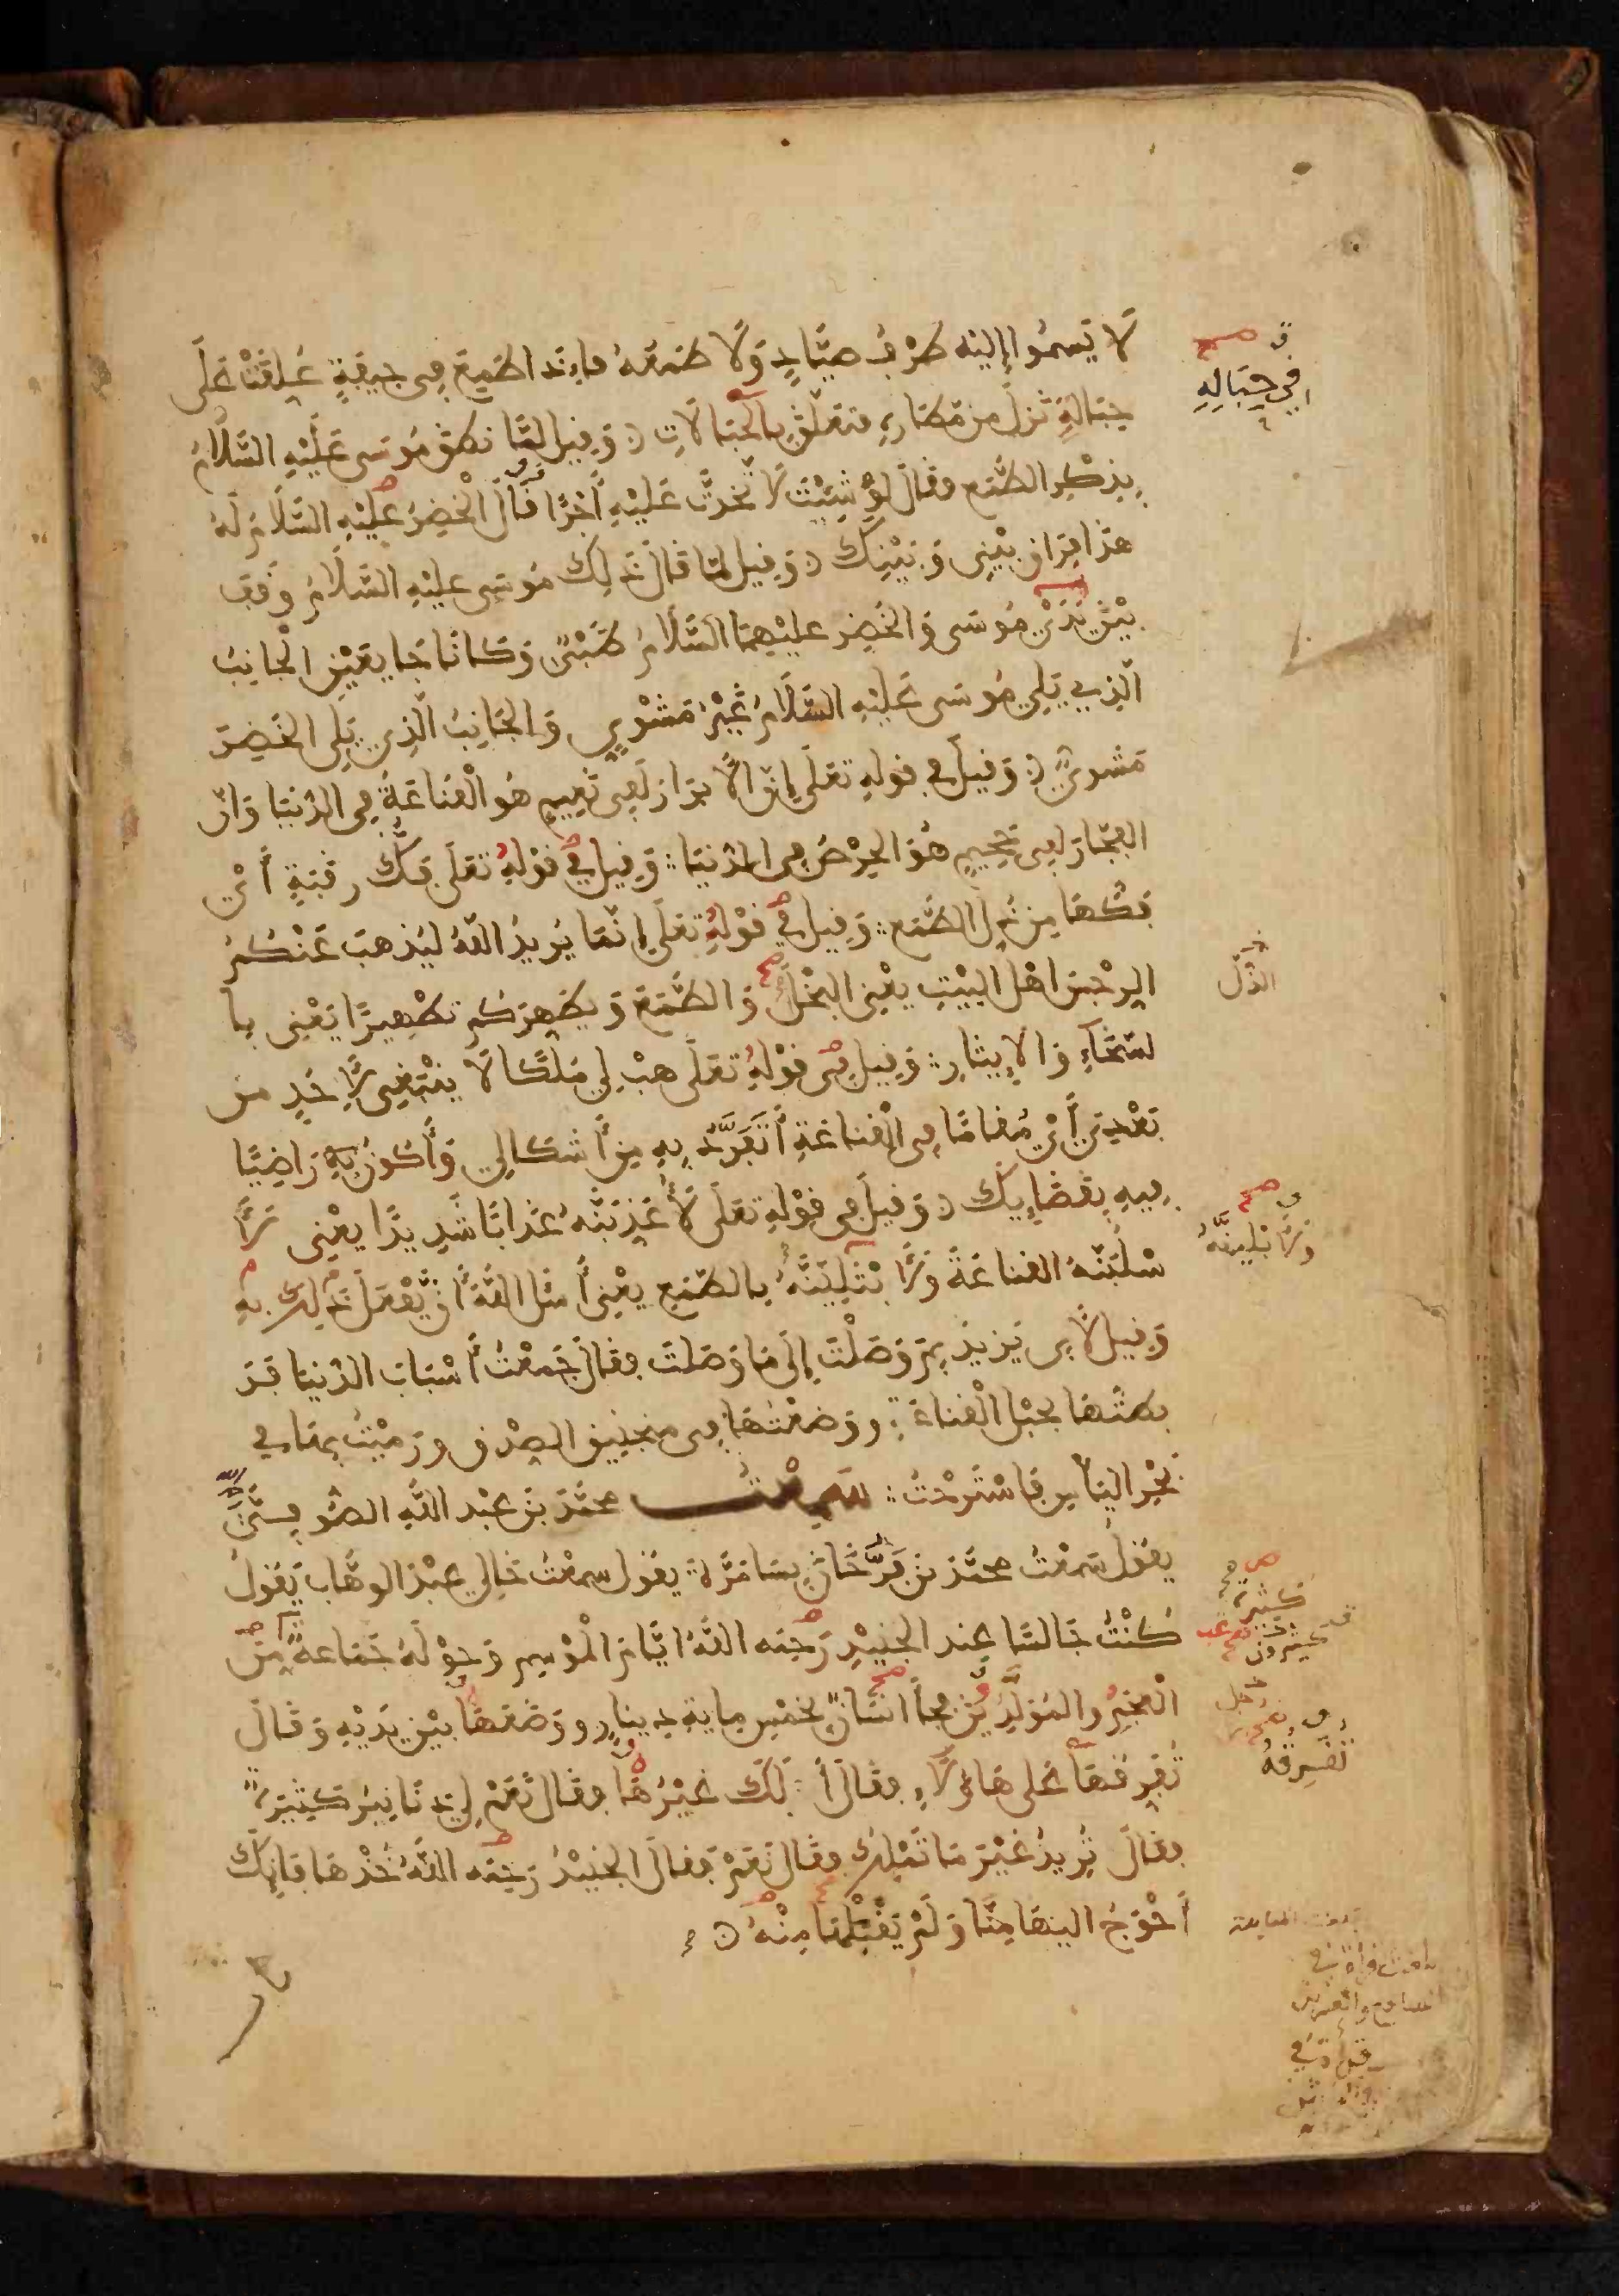 لَا يَسمُوا إليْه طَرْفُ صيَّادٍ وَلَا طَمَعُهُ فاءِذَا طَمِعَ في جيفَةٍ عُلِّقَتْ عَلَى
حِبَالَةٍ نَزلَ من مَطَارِهِ فتعَلَّقَ بالحِبَالَاتِ وَقيل لمَّا نطَقَ مُوسَى عَلَيْهِ السَّلَامُ
بِذِكْرِ الطَّمَع فقَالَ لَوْ شِئْتَ لَاتَّخَذْتَ عَلَيْهِ أَجْرًا قَالَ الْخَضِرُ عَلَيْهِ السَّلَامُ لَهُ
هَذَا فِرَاقُ بَيْنِي وَبَيْنِكَ وَقِيل لمَّا قَالَ ذَلِكَ مُوسَى عليْهِ السَّلَامُ وَقف
بَيْنَ يَدَيْ مُوسَى وَالْخَضِر عليْهِمَا السَّلَامُ ظَبْيٌ وَكانَا جَايعَيْنِ الْجَانِبُ
الَّذِي يَلِي مُوسَى عَلَيْهِ السَّلَامُ غَيْرُ مَشْوِيٍّ وَالجَانِبُ الَّذِي يَلِي الخَضِرَ
مَشْوِيٌّ وَقيلَ في قولِهِ تعَلَى إنّ الأبرَارَ لَفِي نَعِيمٍ هُوَ الْقنَاعَةُ في الدُّنيَا وَإنّ
الفجّارَ لفِي جَحِيمٍ هُوَ الحِرْصُ في الدُّنيَا وَقِيل في قوْلِهِ تعَلَى فَكُّ رقَبَةٍ أَيْ
فَكُّهَا مِن ذُلِّ الطَّمَع وَقِيل في قوْلِهِ تعَلَى إِنَّمَا يُرِيدُ اللهُ ليُذهِبَ عَنْكُمُ
الرِجْسَ اهْلَ البَيْتِ يعْنِي البُخْلَ وَالطَّمَعَ وَيطَهِرَكُم تَطْهِيرًا يَعْنِي با
لسَّخَاءِ وَالإِيثَارِ وَقِيل في قوْلِهِ تعَلَى هبْ لِي مُلْكًا لَا ينْبَغِي لِأَحَدٍ من
بَعْدِي أَيْ مُقامًا في الْقناعَةِ أَتَفَرَّدُ بِهِ مِن أَشكَالِي وَأَكُونُ بِهِ رَاضِيًا
فِيهِ بِقَضَايِكَ وَقِيلَ في قوْلِهِ تعَلَى لَأُعَذِّبَنَّهُ عَذَابًا شَدِيدًا يعْنِي لَأَ
سْلُبَنَّهُ القنَاعَةَ وَلَأَبْتَلِيَنَّهُ بالطَّمَعِ يعْنِي أَسْأَلُ اللهَ أَن يَفْعَلَ ذَلِكَ بِهِ
وَقِيلَ لأَبِي يَزيدَ بِمَ وَصَلْتَ إِلَى مَا وَصَلتَ فقَالَ جَمعْتُ أَسْبَابَ الدُّنيَا قَدَ
بطتُهَا بحَبْل الْقناعَةِ ووَضَعْتُهَا في منجنِيقِ الصِدْقِ ورَمَيْتُ بِهَا في
بَحْرِ اليأسِ فَاسْتَرحْتُ سَمِعْتُ محمَّدَ بْنَ عَبْدِ اللهِ الصُّوفي رَحِمَهُ اللهُ
يقولُ سَمعْتُ محمَّدَ بْنَ فَرَّخَانَ بسَامَرَّةَ يقُول سمعْتُ خَالِي عبْدَ الوهَّاب يَقولُ
كُنْتُ جَالسًا عِند الجُنَيْدِ رَحِمَه اللهُ ايَّامَ الْمَوْسِم وَحوْلَهُ جَمَاعَةٌ مِّنَ
الْعَجَمِ والمُوَلَّدِينَ فجآء انسَانٌ بخَمْسِ مِايةِ دِينارٍ ووَضَعَهَا بيْن يَدَيْهِ وَقَالَ
تُفَرِّقُهَا عَلى هَاؤُلَاءِ فقَالَ أَلَكَ غيْرُهَا فقَالَ نَعَمْ لِي دَنَانِيرُ كثِيرَةٌ
فقالَ تُرِيدُ غَيْرَ مَا تَمْلِكُ فقَالَ نَعَمْ فقالَ الجُنَيْدُ رَحِمَه اللهُ خُذْهَا فَإنكَ
أَحْوَجُ اليْهَا مِنَّا وَلَمْ يَقْبَلْهَا مِنْهُ
في حِبَالِهِ
الذّل
كثيرة
رجل
تفرقه